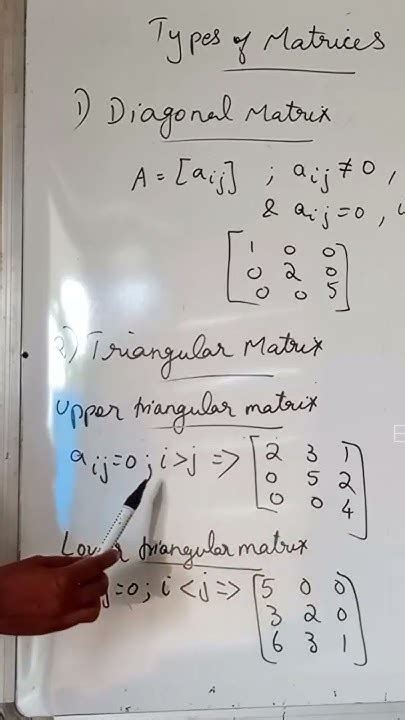 Types of Matrices
1) Diagonal Matrix
A = [aij] ; aij ≠ 0 ,
& aij = 0 ,
[1 0 0
0 2 0
0 0 5]
2) Triangular Matrix
Upper triangular matrix
aij = 0 ; i > j => [2 3 1
0 5 2
0 0 4]
triangular matrix
j = 0 ; i < j => [5 0 0
3 2 0
6 3 1]